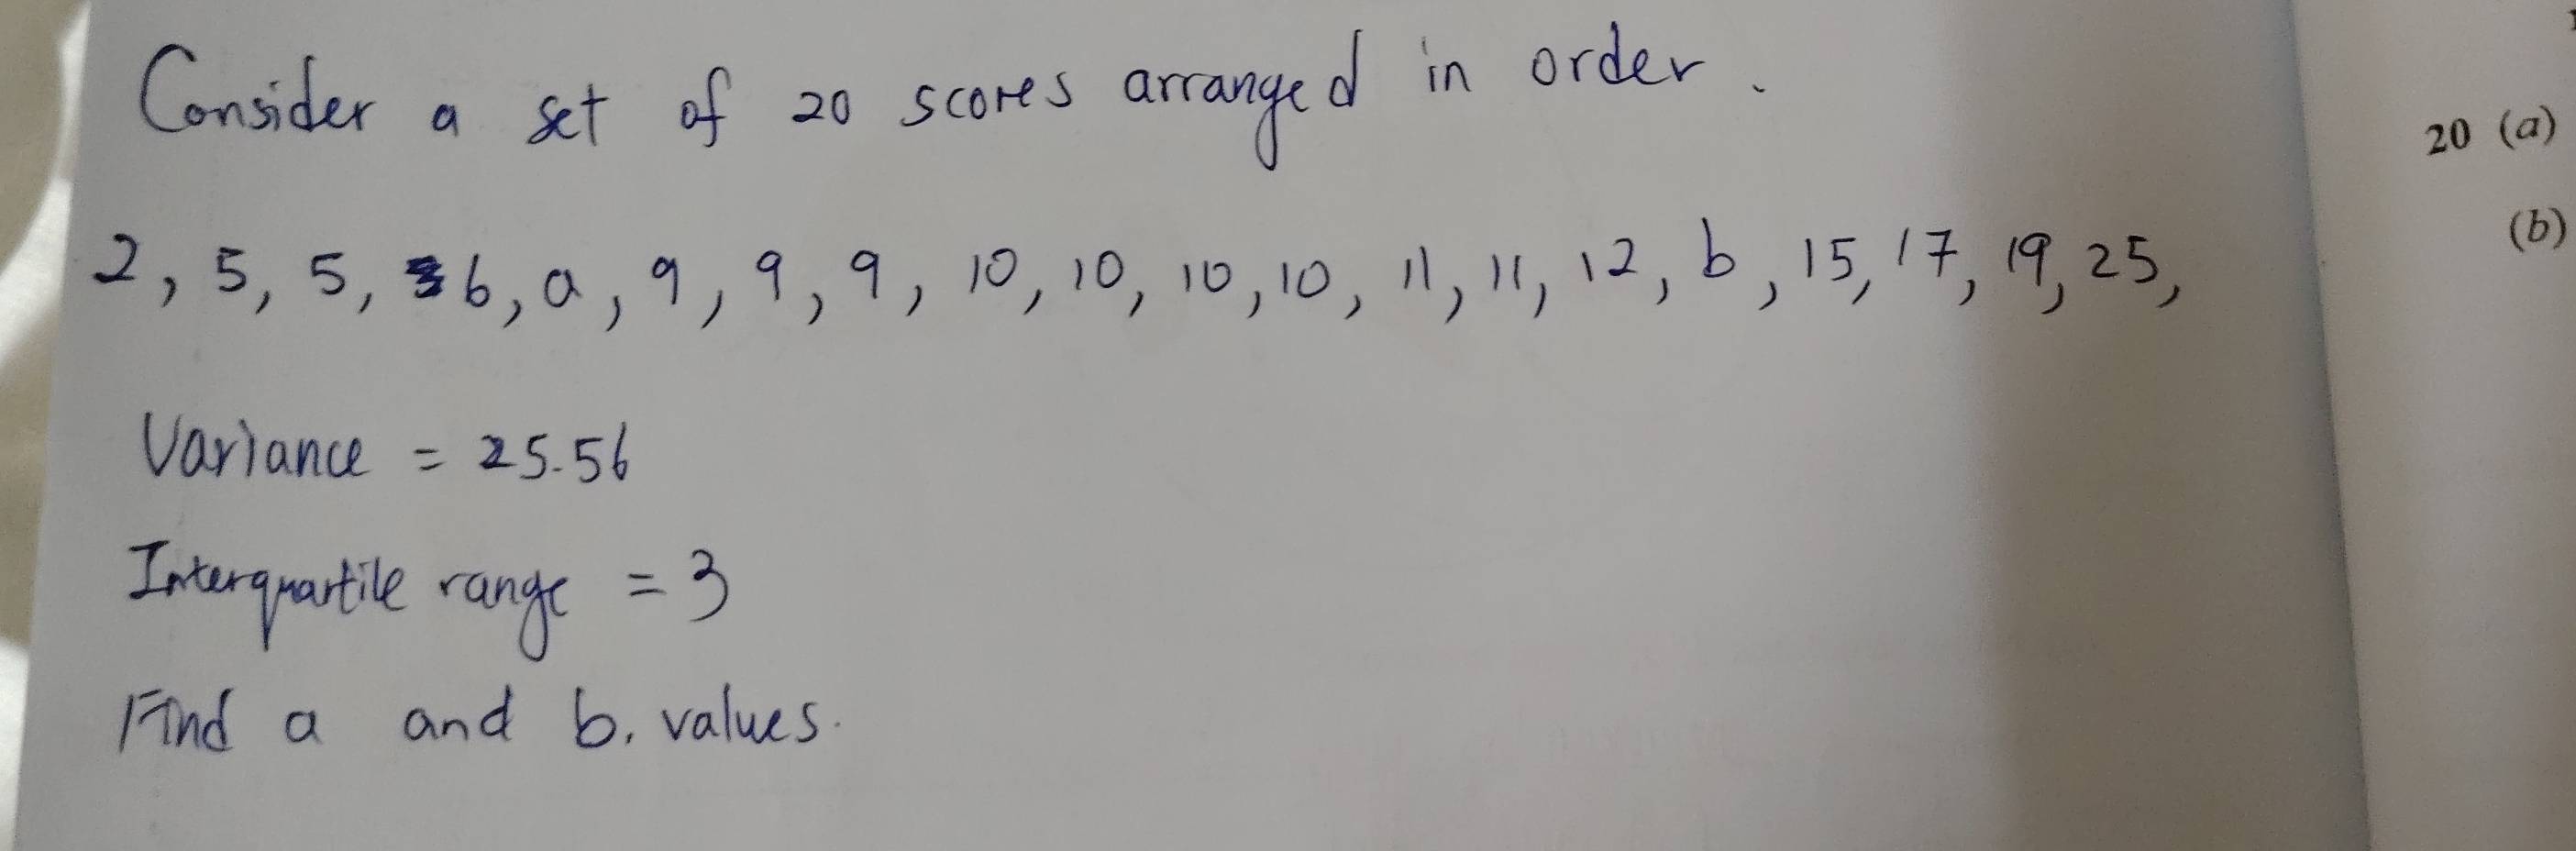 Consider a set of 20 scores arranged in order.
2, 5, 5, 6, a, 9, 9, 9, 10, 10, 10, 10, 11, 11, 12, b, 15, 17, 19, 25,
Variance = 25.56
Interquartile range = 3
Find a and b. values.
20 (a)
(b)